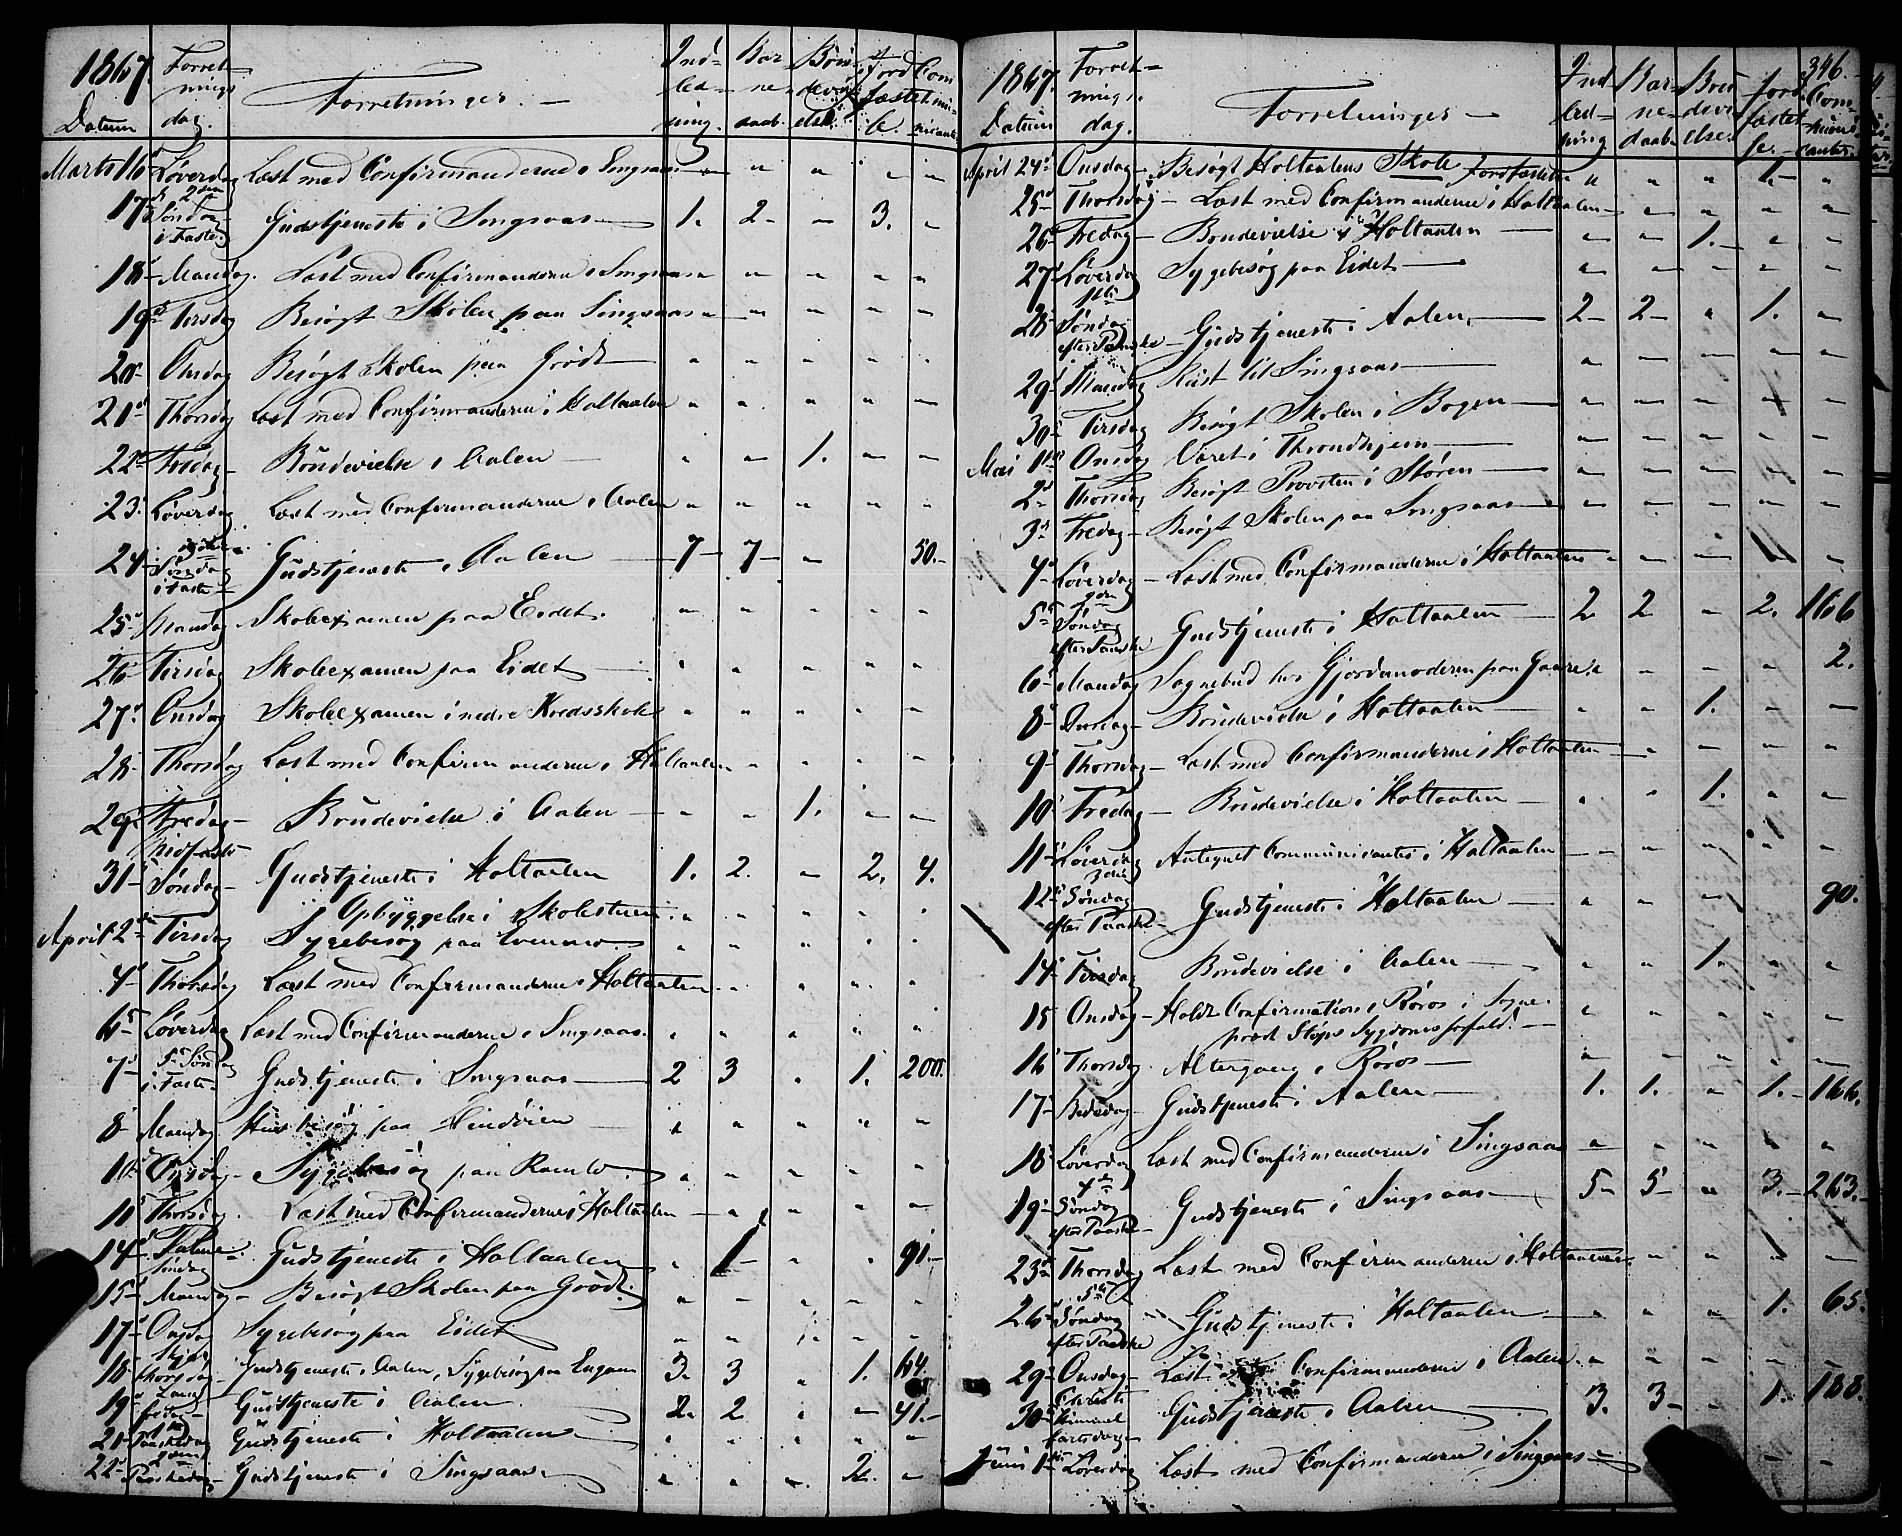 1867. Forret- Forretninger. — Ind- Bar- Brü- Jord- Com-
nings led- ne- devi- fæstel- mü-
Datum dag. ning. daab. else. se. nicant.
Marts 16 Løverdag Læst med Confirmanderne i Singsaas
17 2den Søndag i Faste Gudstjeneste i Singsaas 1. 2 - 3. -
18 Mandag. Læst med Confirmanderne i Singsaas
19 Tirsdag Besøgt Skolen paa Singsaas
20 Onsdag Besøgt Skolen paa Grødt
21 Thorsdag Læst med Confirmanderne i Holtaalen
22 Fredag Brüdevielse i Aalen 1.
23. Løverdag Læst med Confirmanderne i Aalen
24 Søndag i Faste Gudstjeneste i Aalen 7 7 50.
25 Mandag Skoleexamen paa Eidet.
26 Tirsdag Skoleexamen paa Eidet
27 Onsdag Skoleexamen i nedre Kredsskole
28 Thorsdag Læst med Confirmanderne i Holtaalen
29 Fredag Brüdevielse i Aalen 1.
31 Midfaste Søndag Gudstjeneste i Holtaalen 1. 2. 2. 4.
Opbyggelse i Skolestuen
April 2 Tirsdag Sygebesøg paa
4 Thorsdag Læst med Confirmanderne i Holtaalen
6 Løverdag Læst med Confirmanderne i Singsaas
7 5te Søndag i Faste Gudstjeneste i Singsaas 2 3 1. 200.
8 Mandag Husbesøg paa
10 Onsdag Sygebesøg paa Ramlo
11 Thorsdag Læst med Confirmanderne i Holtaalen
14 Palme Søndag Gudstjeneste i Holtaalen 1 91.
15 Mandag Besøgt Skolen paa Grødt
17 Onsdag Sygebesøg paa Eidet
18 Skjær Thorsdag Gudstjeneste i Aalen, Sygebesøg paa Engan 3. 3 1. 64.
19 Langfredag Gudstjeneste i Aalen. 2. 2 41.
21 1ste Paaskedag Gudstjeneste i Holtaalen
22 2den Paaskedag Gudstjeneste i Singsaas 2.
346.
1867. Forret- Forretninger — Ind Bar- Brü- Jord- Com-
nings. led- ne- devi- fæstel- muni-
Datum dag. ning daab. else. se. canter.
April 24 Onsdag Besøgt Holtaalens Skole Jordfæstelse 1
25 Thorsdag Læst med Confirmanderne i Holtaalen
26 Fredag Brudevielse i Holtaalen 1.
27 Løverdag Sygebesøg paa Eidet
28 1ste Søndag efter Paaske Gudstjeneste i Aalen 2 2 1.
29 Mandag Reist til Singsaas
30 Tirsdag Besøgt Skolen i Bogen
Mai 1 Onsdag Været i Throndhjem
2 Thorsdag Besøgt Provsten i Støren
3 Fredag Besøgt Skolen paa Singsaas
4 Løverdag Læst med Confirmanderne i Holtaalen
5 2den Søndag efter Paaske Gudstjeneste i Holtaalen 2 2 2. 166
6 Mandag Sognebud hos Gjordemoderen paa Gaare 2.
8 Onsdag Brüdevielse i Holtaalen 1.
9 Thorsdag Læst med Confirmanderne i Holtaalen
10 Fredag Brüdevielse i Holtaalen 1.
11 Løverdag Antegnet Communicanter i Holtaalen
12 3die Søndag efter Paaske Gudstjeneste i Holtaalen 90.
14 Tirsdag Brüdevielse i Aalen 1.
15 Onsdag Holdt Confirmation i Røros i Sogne-
præst Støps Sygdoms forfald!
16 Thorsdag Altergang i Røros
17 Bededag Gudstjeneste i Aalen 1. 1. 1. 166.
18 Løverdag Læst med Confirmanderne i Singsaas
19 4de Søndag efter Paaske Gudstjeneste i Singsaas 5 5 3. 263.
23 Thorsdag Læst med Confirmanderne i Holtaalen
26 5te Søndag efter Paaske Gudstjeneste i Holtaalen 1. 65.
29 Onsdag Læst Confirmanderne i Aalen.
30 Christi Himmelfartsdag Gudstjeneste i Aalen 3. 3 1. 188.
Juni 1 Løverdag Læst med Confirmanderne i Singsaas